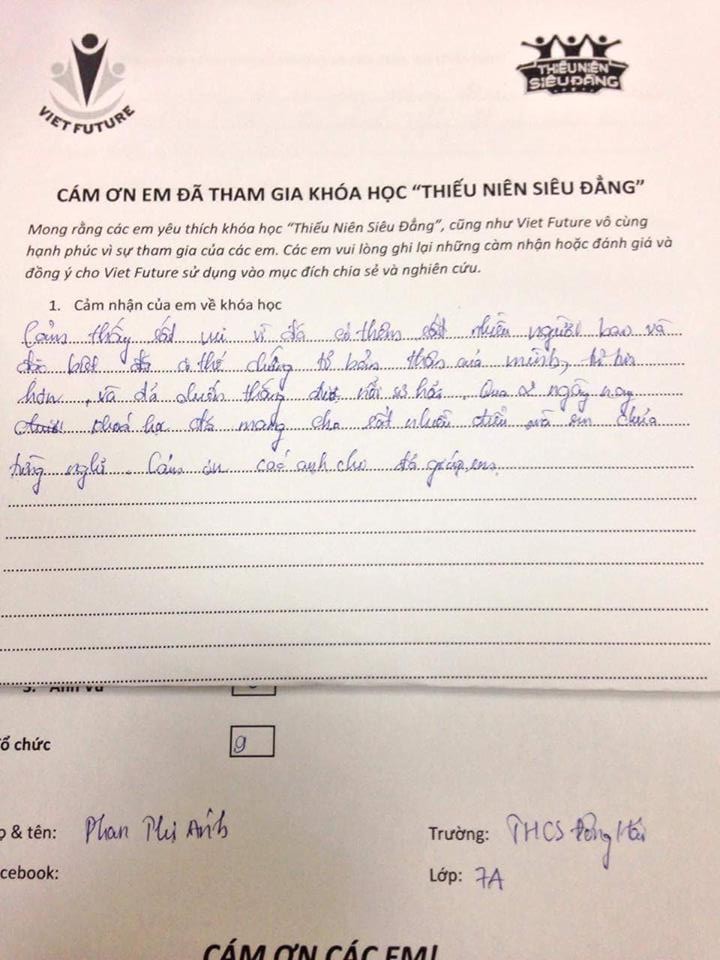 VIET FUTURE
THIẾU NIÊN
SIÊU ĐẲNG
CÁM ƠN EM ĐÃ THAM GIA KHÓA HỌC “THIẾU NIÊN SIÊU ĐẲNG”
Mong rằng các em yêu thích khóa học “Thiếu Niên Siêu Đẳng”, cũng như Viet Future vô cùng
hạnh phúc vì sự tham gia của các em. Các em vui lòng ghi lại những cảm nhận hoặc đánh giá và
đồng ý cho Viet Future sử dụng vào mục đích chia sẻ và nghiên cứu.
1. Cảm nhận của em về khóa học
Cảm thấy rất vui vì đã có thêm rất nhiều người bạn và
đặc biệt đã có thể chứng tỏ bản thân của mình, tự tin
hơn, và đã chiến thắng được nỗi sợ hãi. Qua 2 ngày nay
khoá học đã mang cho rất nhiều điều mà em chưa
từng nghĩ. Cảm ơn các anh chị đã giúp em.
3. Anh Vũ
ổ chức
9
ọ & tên: Phan Thị Anh
Trường: THCS Đông Hải
cebook:
Lớp: 7A
CÁM ƠN CÁC EM!